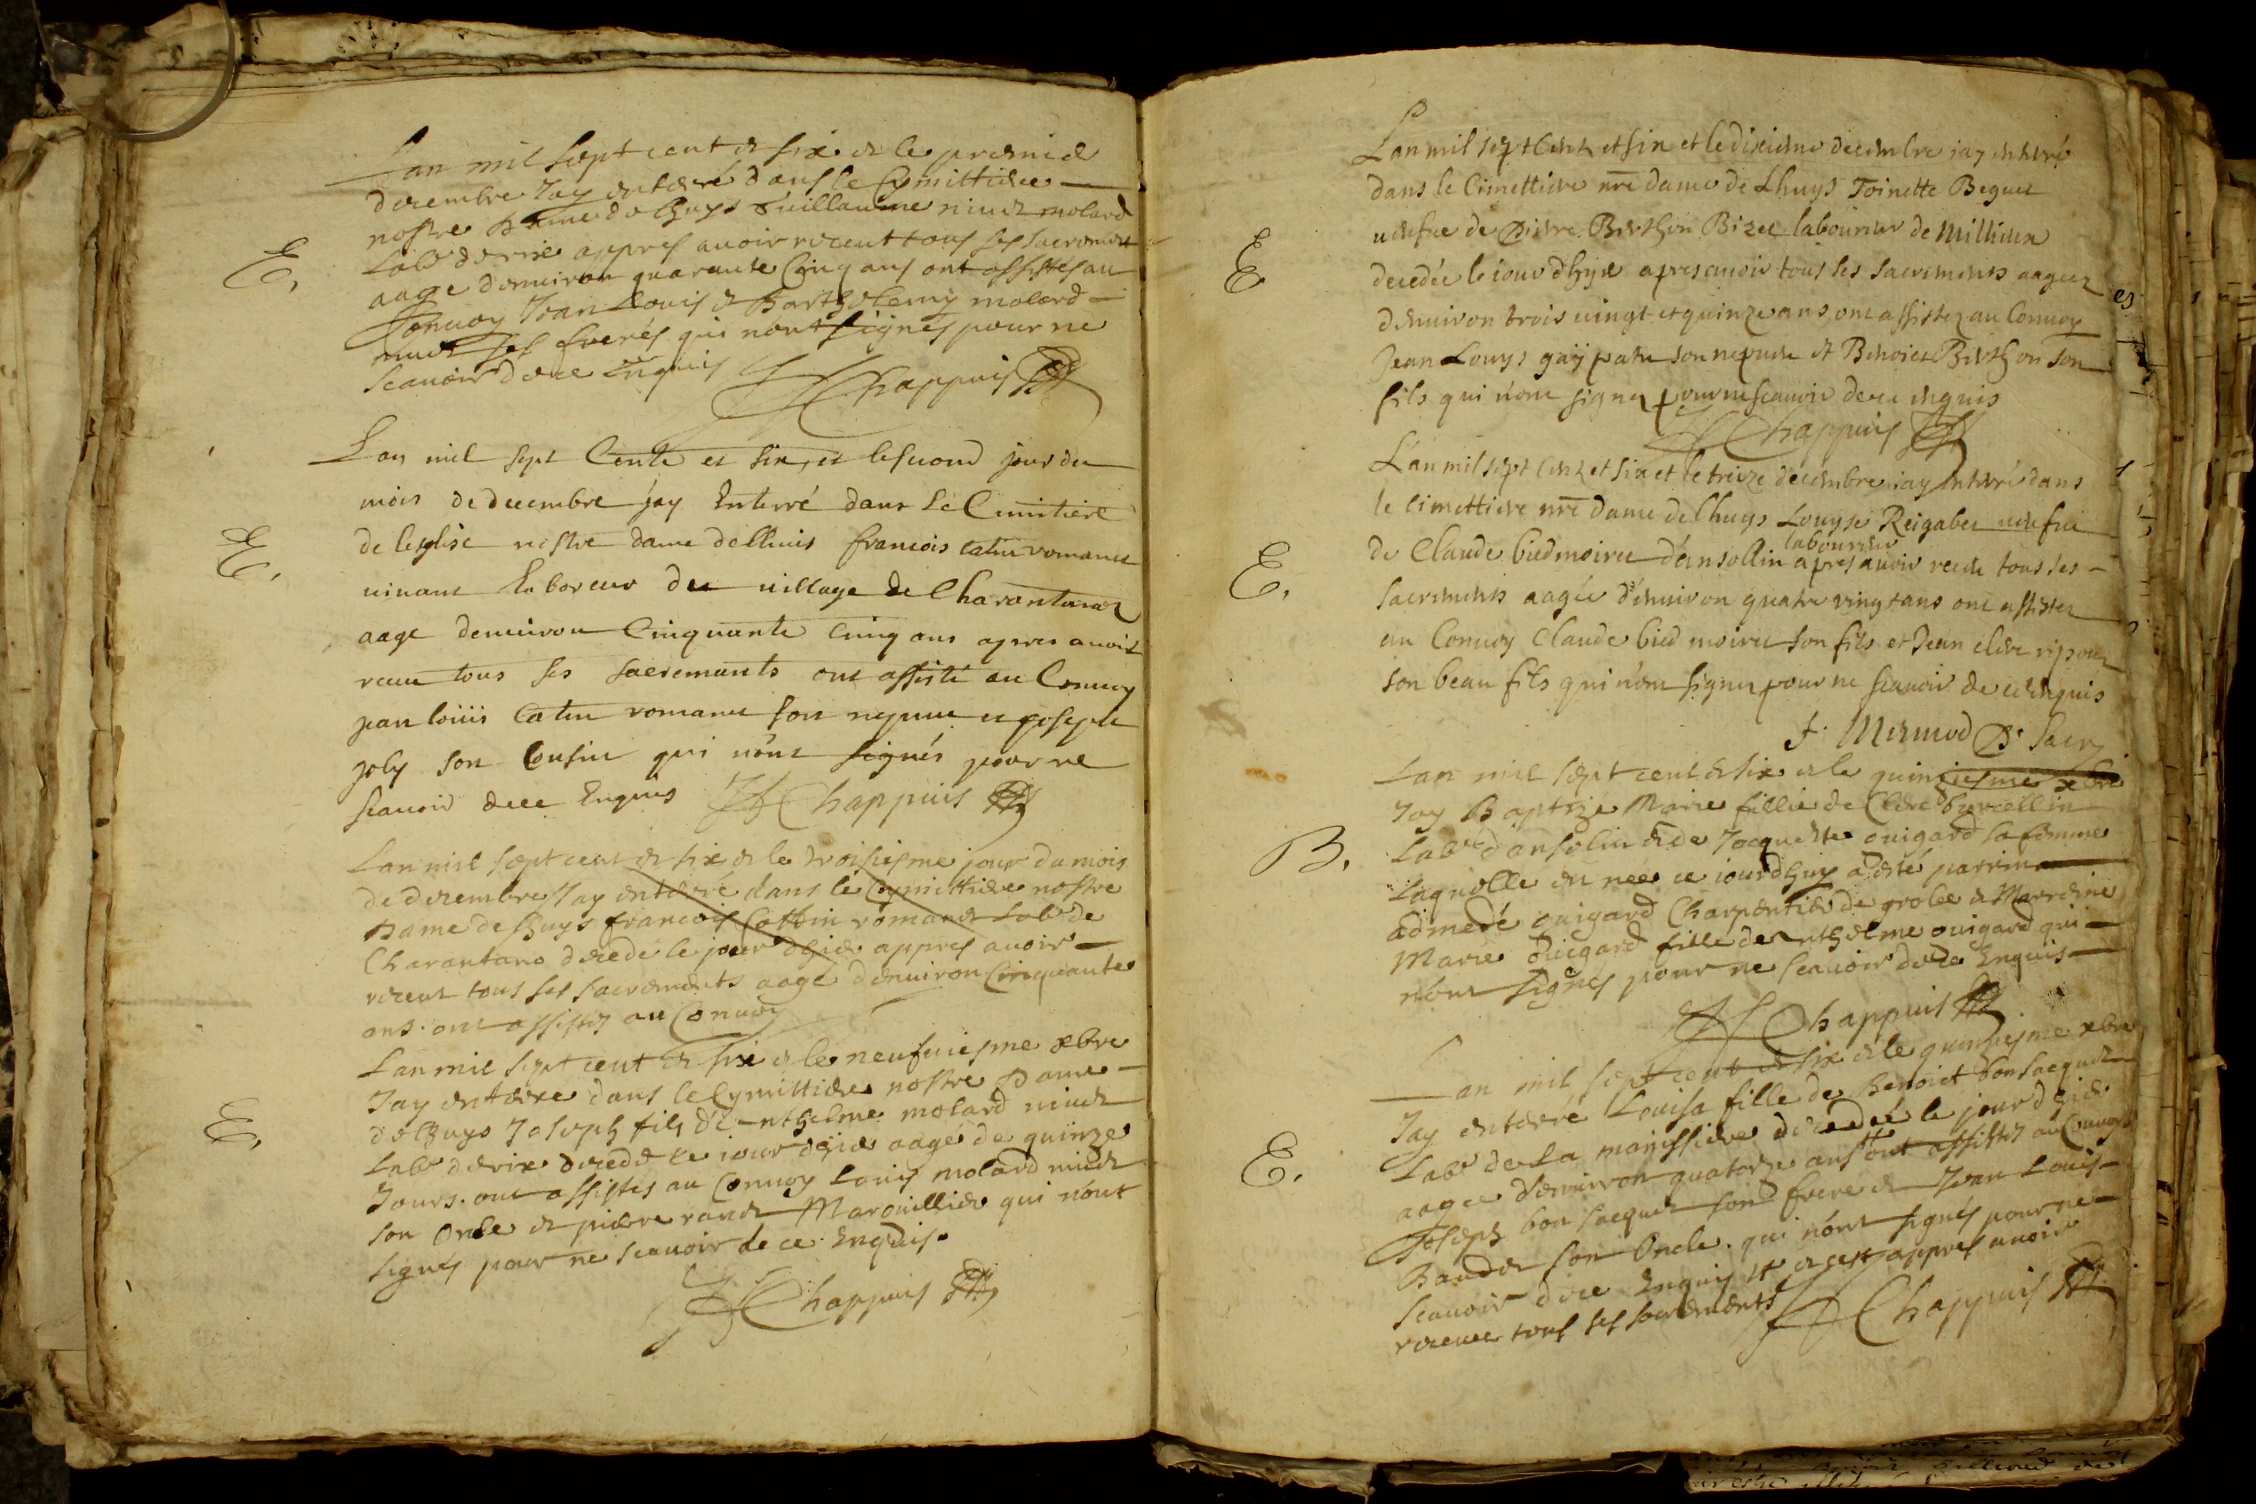 Lan mil sept cent et six et le premier
decembre Jay enterré dans le Cymittiere
nostre Dame de lhuys Guillaume niuet molard
Labr derix appres auoir receut tous ses sacrements
E.
aage denuiron quarante Cinq ans ont assistés au
Conuoy Jean Louis et Barthelemy molard
niuet ses freres qui nont signés pour ne
scauoir de ce Enquis Chappuis
Lan mil sept Cents et six, et le second jour du
mois de decembre jay Enterré dans le Cimitiere
de leglise nostre dame delhuis francois catin romanet
E.
uiuant laboreur du uillage de Charantanoz
aage denuiron Cinquante cinq ans apres auoir
receu tous ses sacremants ont assisté au Conuoy
jean loüis Catin romanet son nepueu et joseple
joly son Cousin qui nónt signés pour ne
scauoir dece Enquis Chappuis
Lan mil sept cent et six et le troisiesme jour du mois
de decembre Jay enterré dans le Cymittiere nostre
Dame de lhuys francois Cattin romanet Labr de
Charantano decedé le jour dhier appres auoir
receut tous ses sacrements aagé denuiron Cinquante
ans. ont assistez au Conuoy
Lan mil sept cent et six et le neufuiesme xbre
Jay enterré dans le Cymittiere nostre Dame
E.
de lhuys Joseph fils d'Anthelme molard niuet
Labr derix decedé le iour dhier aagé de quinze
Jours. ont assistés au Conuoy Louis molard niuet
son Oncle et pierre rauet Marouillier qui nónt
signés pour ne scauoir de ce Enquis.
Chappuis
Lan mil sept Cent et six et le dixieme decembre iay enterré
dans le Cimettiere nre dame de Lhuys Toinette Beguet
uefue de Pierre Berthon Bizet laboureur de Millieux
E
decedée le iour dhyer apres auoir tous ses sacrements aagée
d'enuiron trois uingt et quinze ans, ont assistez au Conuoy
Jean Louys gaÿ patu son nepueu et Benoict Berthon son
fils qui nónt signez pour ne scauoir de ce enquis
Chappuis
L'an mil sept Cent et six et le treize decembre iay enterré dans
le cimettiere nre dame de lhuys Louyse Reigabet uefue
laboureur
de Claude bied moiret d'ansollin apres auoir receu tous ses
E.
sacrements aagée d'énuiron quatre vingt ans ont assistez
au Conuoy Claude bied moiret son fils et Jean
son beau fils qui nónt signez pour ne scauoir de ce enquis
f. Mermod
Lan mil sept cent et six et le quinziesme xbre
Jay Baptizé Marie fillie de Clere
B.
Labr d'ansolin et de Jacquette ouigard sa femme
Laquelle est née ce iourdhuy a esté parrin
edmedé ouigard Charpentier de grolee et Marreine
Marie ouigard fille de Anthelme ouigard qui
nónt signés pour ne scauoir de ce Enquis
Chappuis
Lan mil sept cent et six et le quinziesme xbre
Jay enterré Louisa fille de benoict bon Jacquet
Labr de La manissiere decedée le jour dhier
E.
aagee denuiron quatorze ans ont assistez au Conuoy
Joseph bon jacquet son frere et Jean Louis
Baudet son Oncle. qui nónt signés pour ne
scauoir de ce Enquis et cest appres auoir
receuee tous ses sacrements Chappuis